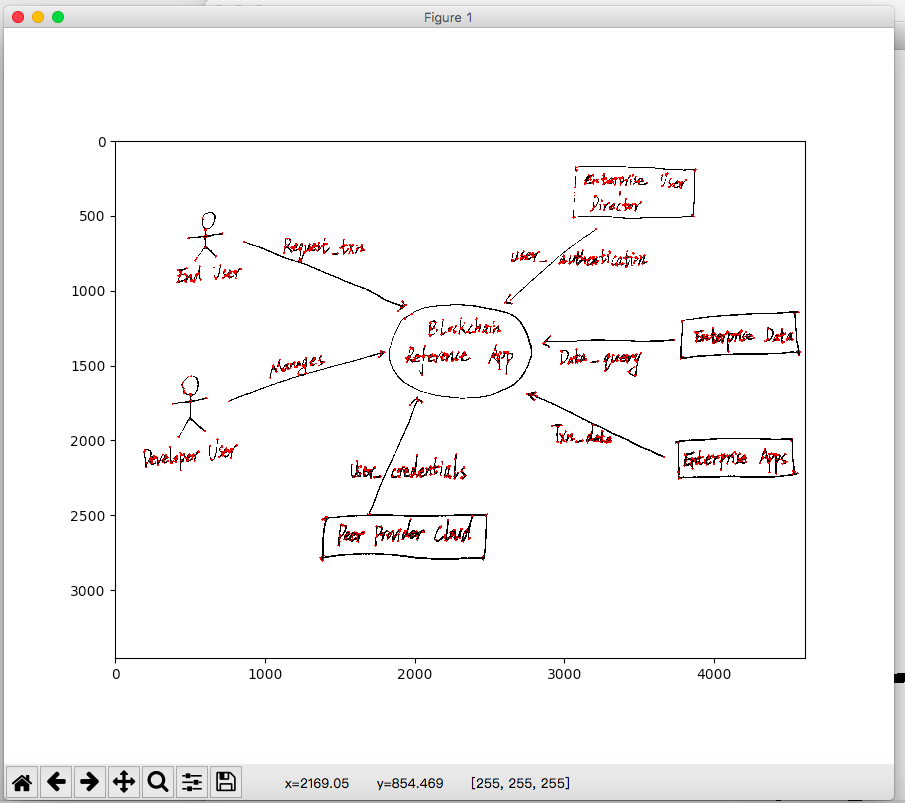 Figure 1
0
500
1000
1500
2000
2500
3000
0
1000
2000
3000
4000
Enterprise User
Director
End User
Request_txn
user_authentication
Blockchain
Reference App
Enterprise Data
Data_query
Manages
Developer User
Txn_data
Enterprise Apps
User_credentials
Peer Provider Cloud
x=2169.05 y=854.469 [255, 255, 255]